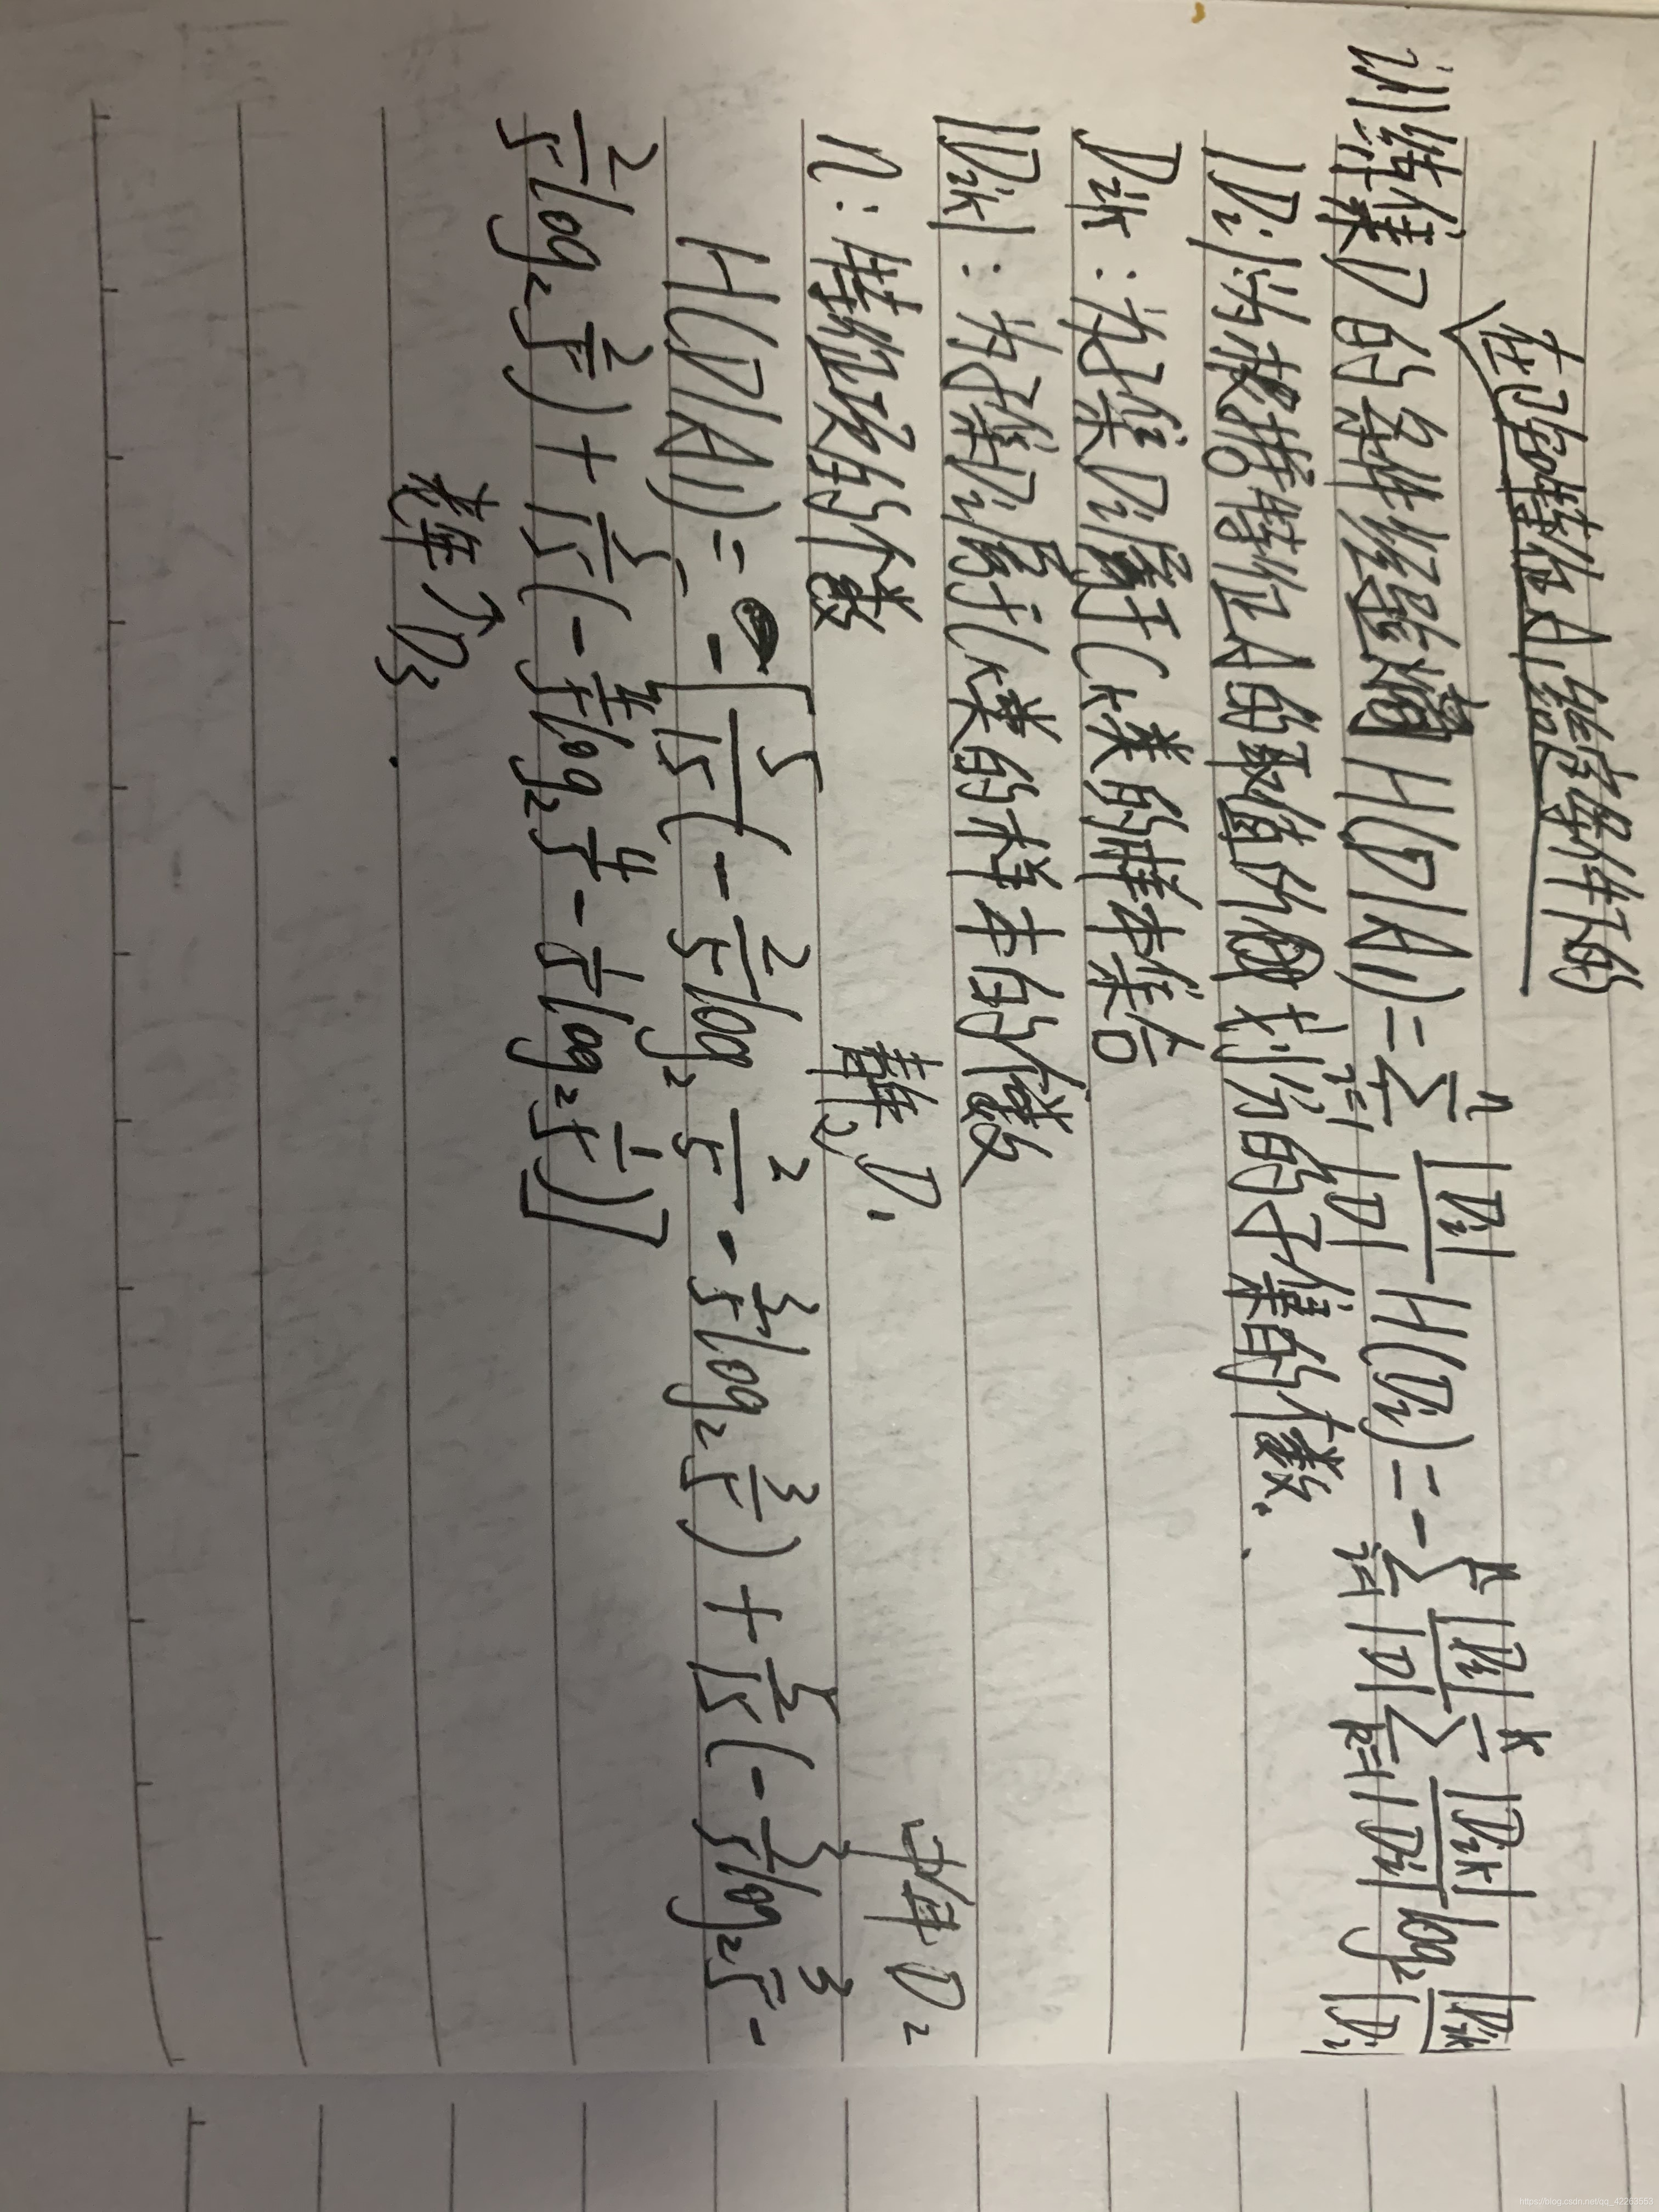 在特征A给定条件下的
训练集D的条件经验熵 H(D|A) = \sum_{i=1}^{n} \frac{|D_i|}{|D|} H(D_i) = -\sum_{i=1}^{n} \frac{|D_i|}{|D|} \sum_{k=1}^{k} \frac{|D_{ik}|}{|D_i|} log_2 \frac{|D_{ik}|}{|D_i|}
|D_i|为根据特征A的取值的划分的子集的个数.
D_{ik}:为集D_i属于C_k类的样本集合
|D_{ik}|:为集D_i属于C_k类的样本的个数
n:特征取的个数
青年D_1 中年D_2
H(D|A_1) = -[\frac{5}{15}(-\frac{2}{5}log_2 \frac{2}{5} - \frac{3}{5}log_2 \frac{3}{5}) + \frac{5}{15}(-\frac{3}{5}log_2 \frac{3}{5} -
\frac{2}{5}log_2 \frac{2}{5}) + \frac{5}{15}(-\frac{4}{5}log_2 \frac{4}{5} - \frac{1}{5}log_2 \frac{1}{5})]
老年↑D_3
https://blog.csdn.net/qq_42263553